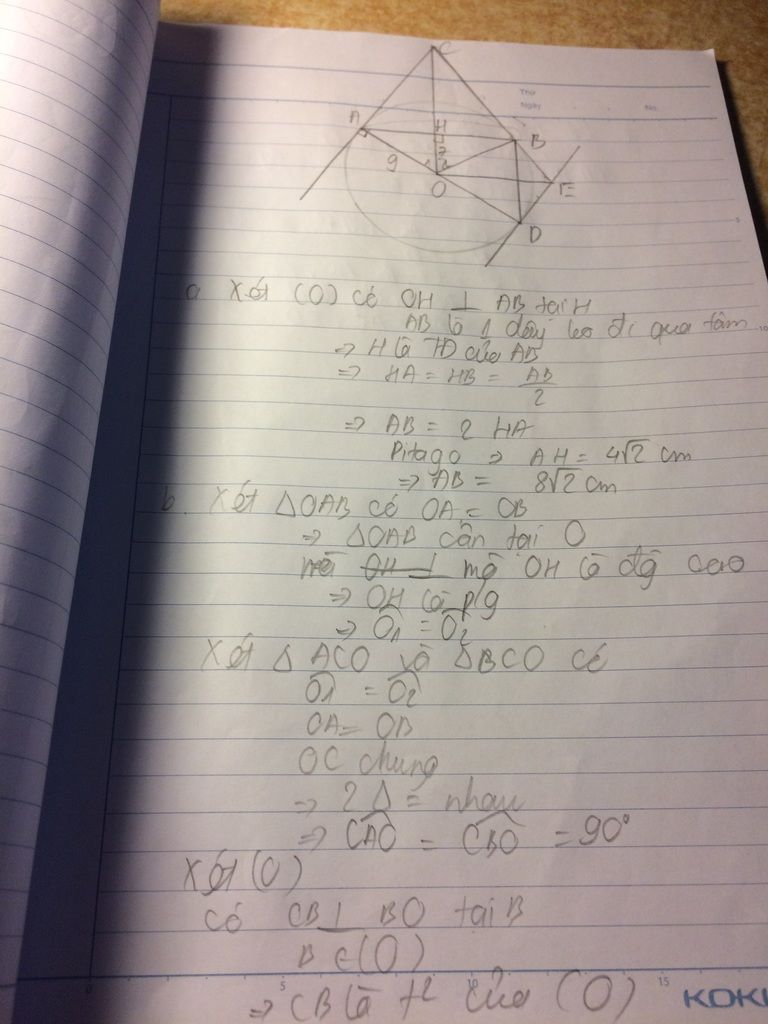 C
Thứ
Ngày
No.
A
H
B
9
1
2
O
E
D
5
a Xét (O) có OH ⊥ AB tại H
AB là 1 dây ko đi qua tâm
10
⇒ H là TĐ của AB
⇒ HA = HB = AB/2
⇒ AB = 2 HA
Pitago ⇒ AH = 4√2 cm
⇒ AB = 8√2 cm
b. Xét △OAB có OA = OB
⇒ △OAB cân tại O
mà OH là đg cao
⇒ OH là pg
⇒ Ô1 = Ô2
Xét △ ACO và △BCO có
Ô1 = Ô2
OA = OB
OC chung
⇒ 2 △ = nhau
⇒ CAO = CBO = 90°
Xét (O)
Có CB ⊥ BO tại B
B ∈ (O)
0 5 10 15 KOKU
⇒ CB là t² của (O)